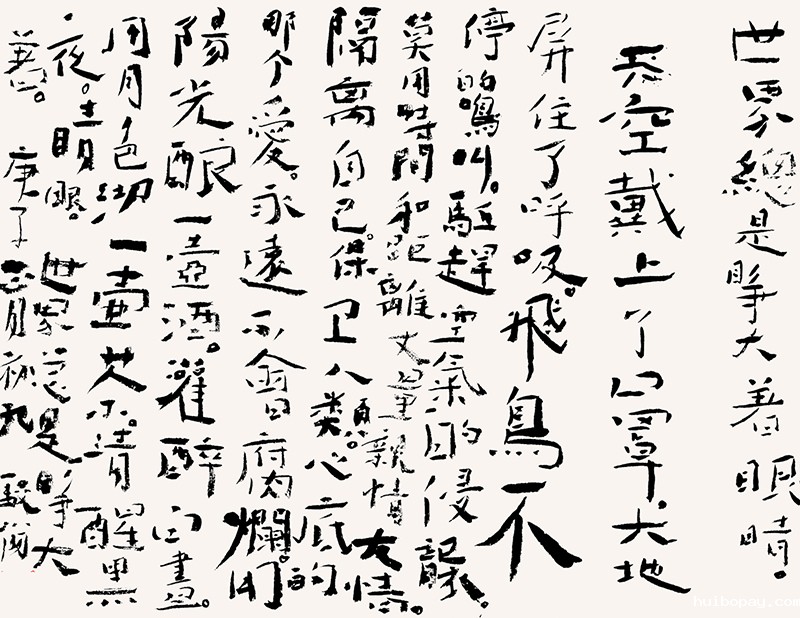 世界總是睜大着眼睛。
天空戴上了口罩大地
屏住了呼吸。飛鳥不
停的鳴叫。驅趕空氣的侵襲。
莫用時間和距離丈量親情友情。
隔离自己。保卫人類。心底的
那个愛。永遠不會腐爛。用
陽光酿一壺酒。灌醉白晝。
用月色沏一壺茶。清醒黑
夜。睛眼。世界总是睜大
着。庚子正月初九
huibopay.com